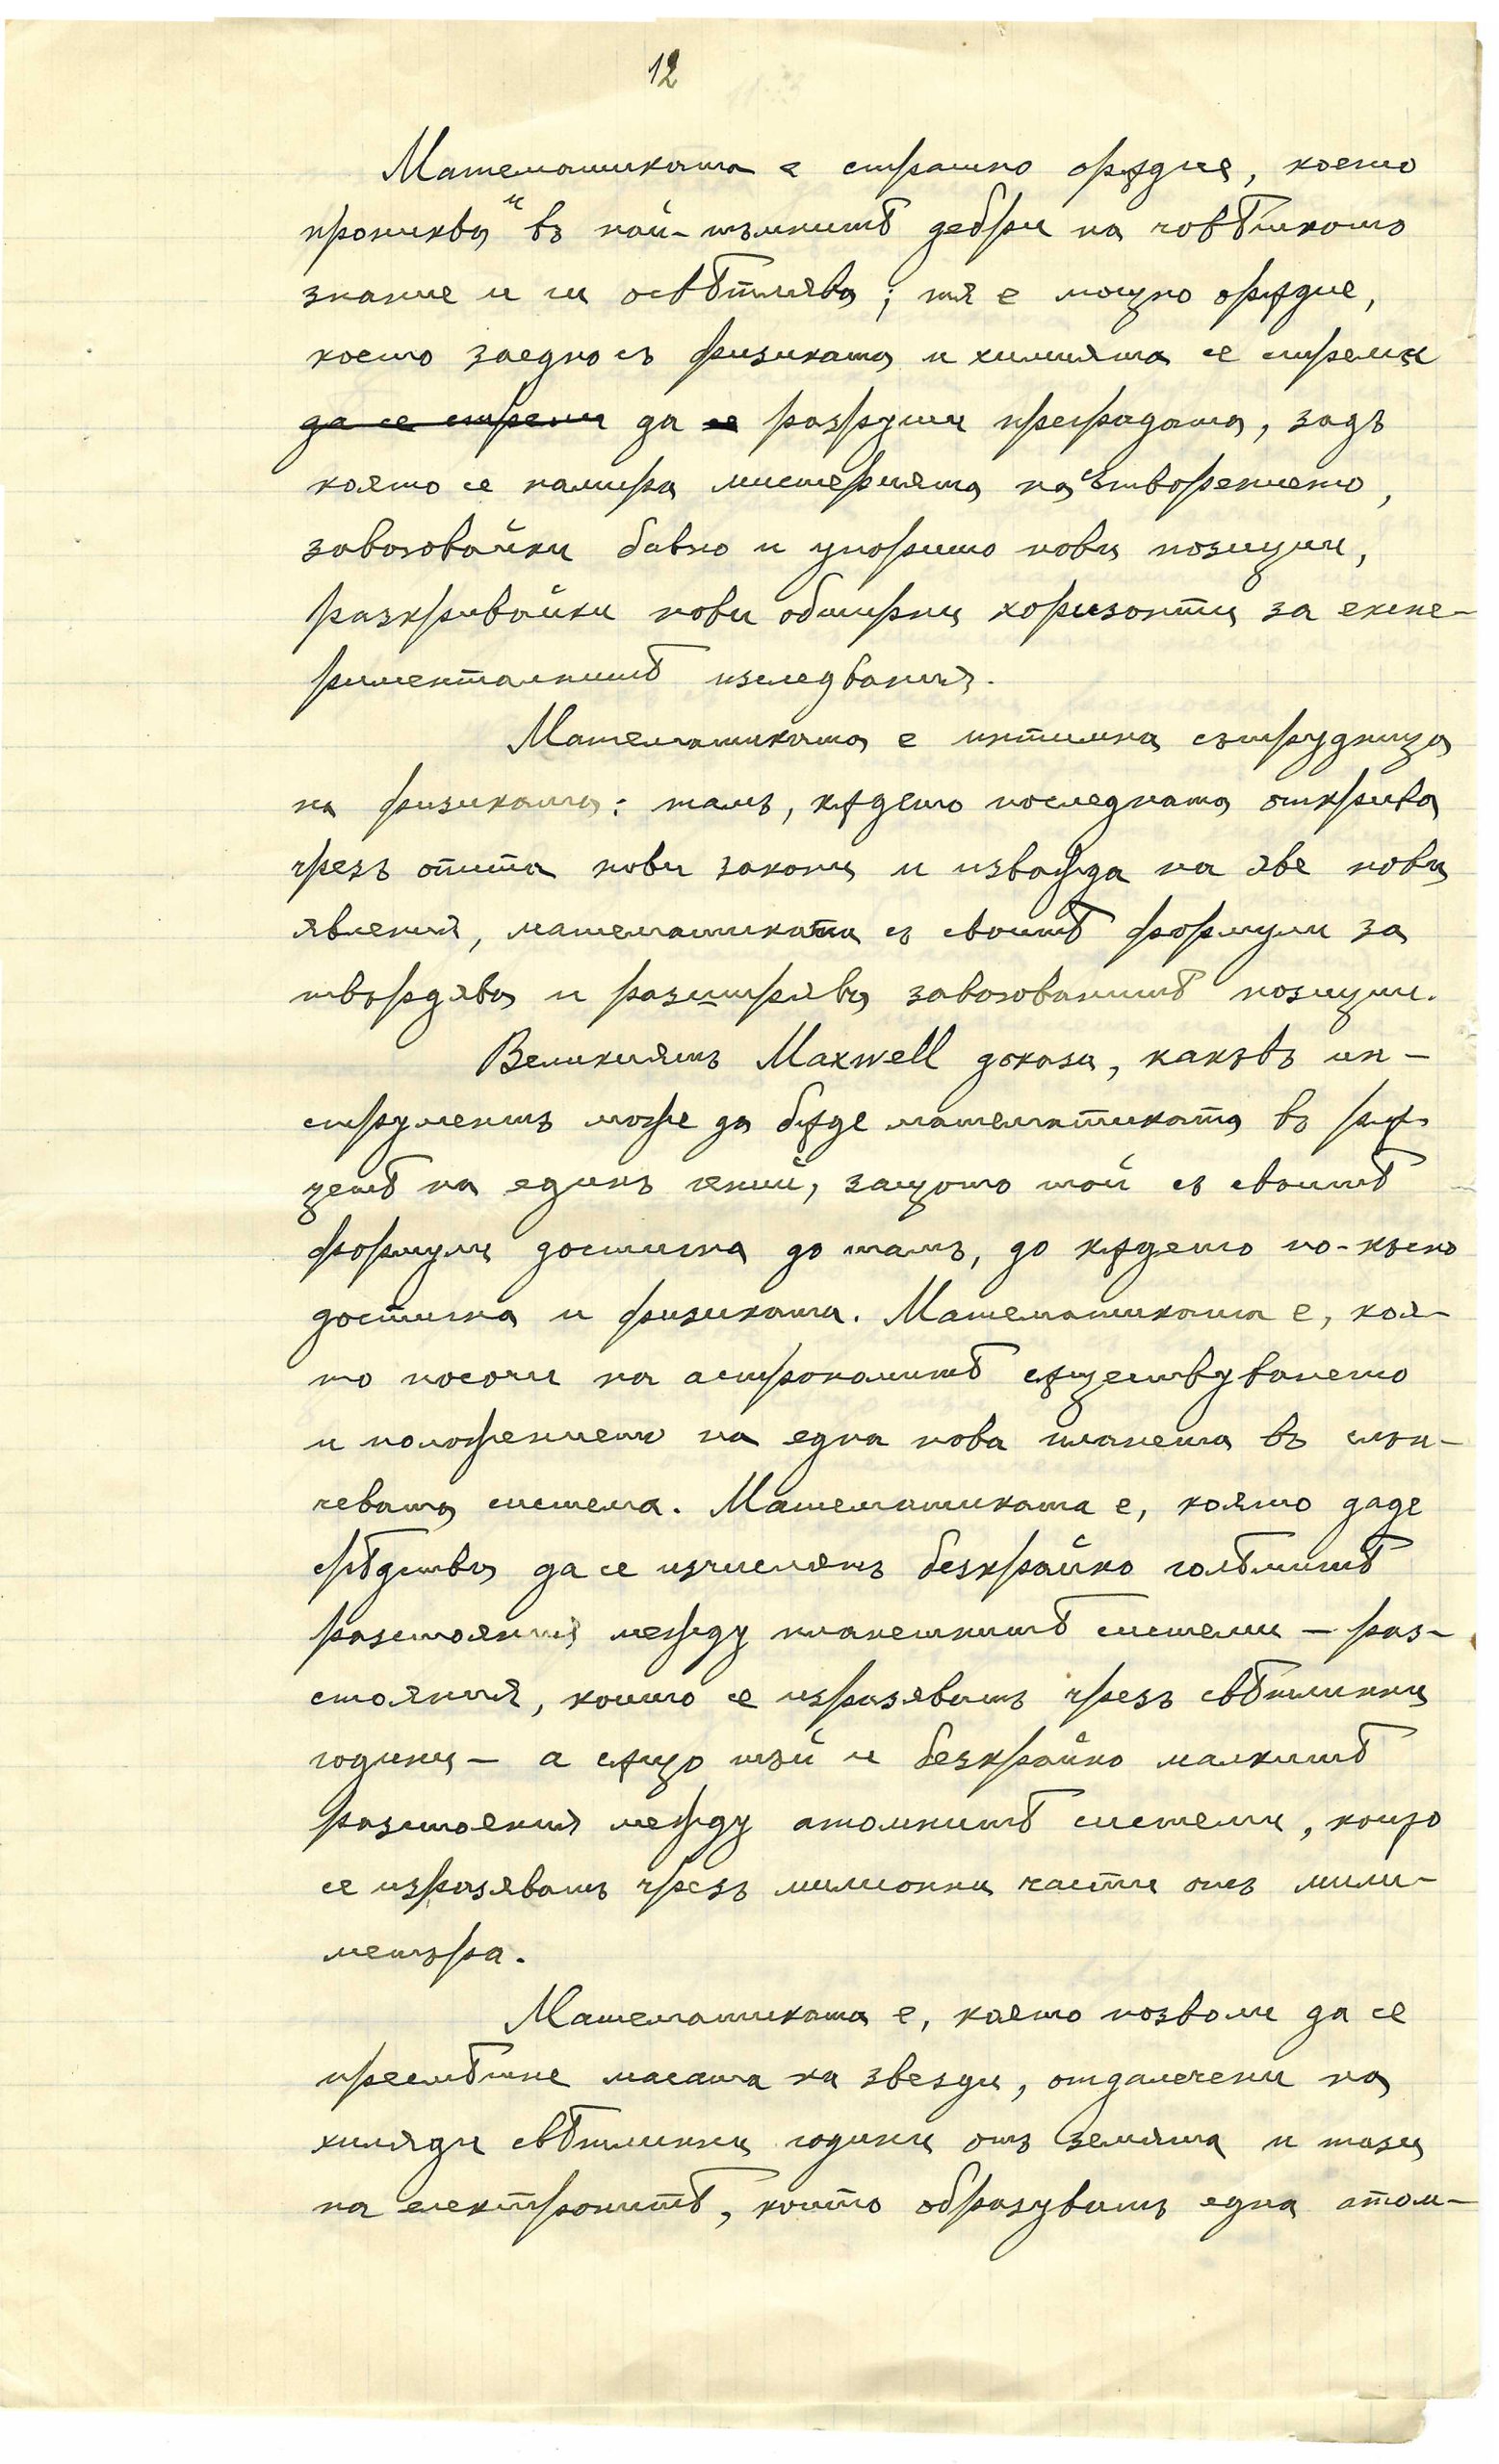 12
Математиката е страшно орѫдие, което
прониква и въ най-тъмнитѣ дебри на човѣшкото
знание и ги освѣтлява; тя е мощно орѫдие,
което заедно съ физиката и химията се стреми
да се стреми да се разруши преградата, задъ
която се намира мистерията на сътворението,
завоювайки бавно и упорито нови позиции,
разкривайки нови обширни хоризонти за експе-
рименталнитѣ изследвания.
Математиката е интимна сътрудница
на физиката: тамъ, кѫдето последната открива
чрезъ опита нови закони и изважда на яве нови
явления, математиката съ своитѣ формули за
твърдява и разширява завоюванитѣ позиции.
Великиятъ Maxwell доказа, какъвъ ин-
струментъ може да бѫде математиката въ рѫ-
цетѣ на единъ гений, защото той съ своитѣ
формули достигна до тамъ, до кѫдето по-късно
достигна и физиката. Математиката е, коя-
то посочи на астрономитѣ сѫществуването
и положението на една нова планета въ слън-
чевата система. Математиката е, която даде
срѣдства да се изчислятъ безкрайно голѣмитѣ
разстояния между планетнитѣ системи – раз-
стояния, които се изразяватъ чрезъ свѣтлинни
години – а сѫщо тъй и безкрайно малкитѣ
разстояния между атомнитѣ системи, които
се изразяватъ чрезъ милионни части отъ мили-
метъра.
Математиката е, която позволи да се
пресмѣтне масата на звезди, отдалечени на
хиляди свѣтлинни години отъ земята и тази
на електронитѣ, които образуватъ една атом-